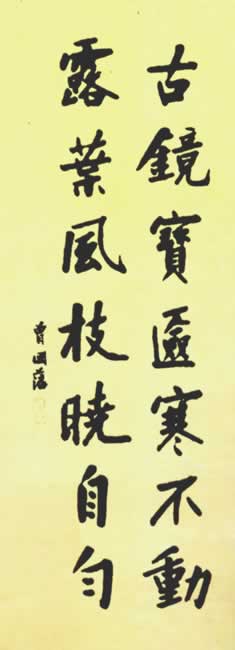 古鏡寶匳寒不動
露葉風枝曉自勻
曾國藩